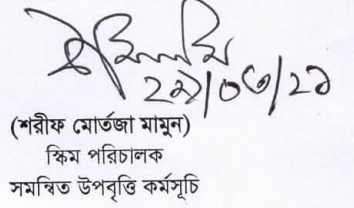 ২৯/০৩/২১
(শরীফ মোর্তজা মামুন)
স্কিম পরিচালক
সমন্বিত উপবৃত্তি কর্মসূচি